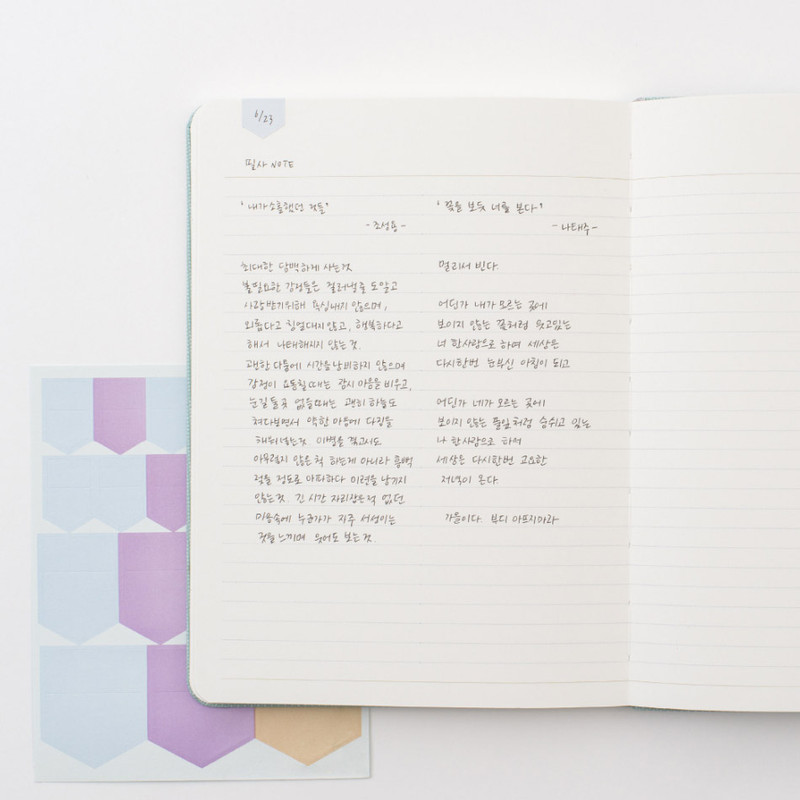 6/23
필사 NOTE
'내가 소홀했던 것들'
- 조성용 -
최대한 담백하게 사는것
불필요한 감정들은 걸러낼줄도 알고
사랑받기위해 욕심내지 않으며,
외롭다고 칭얼대지않고, 행복하다고
해서 나태해지지 않는 것.
괜한 다툼에 시간을 낭비하지 않으며
감정이 요동칠때는 잠시 마음을 비우고,
눈길 둘곳 없을때는 괜히 하늘도
쳐다보면서 약한 마음에 다짐들
채워넣는것. 이별을 겪고서도
아무렇지 않은 척 하는게 아니라 흠뻑
젖을 정도로 아파하다 미련을 남기지
않는것. 긴 시간 자리잡은적 없던
마음속에 누군가가 자주 서성이는
것을 느끼며 웃어도 보는것.
'꽃을 보듯 너를 본다'
- 나태주 -
멀리서 빈다.
어딘가 내가 모르는 곳에
보이지 않는 꽃처럼 웃고있는
너 한사람으로 하여 세상은
다시한번 눈부신 아침이 되고
어딘가 네가 모르는 곳에
보이지 않는 풀잎처럼 숨쉬고 있는
나 한사람으로 하여
세상은 다시한번 고요한
저녁이 온다.
가을이다. 부디 아프지마라